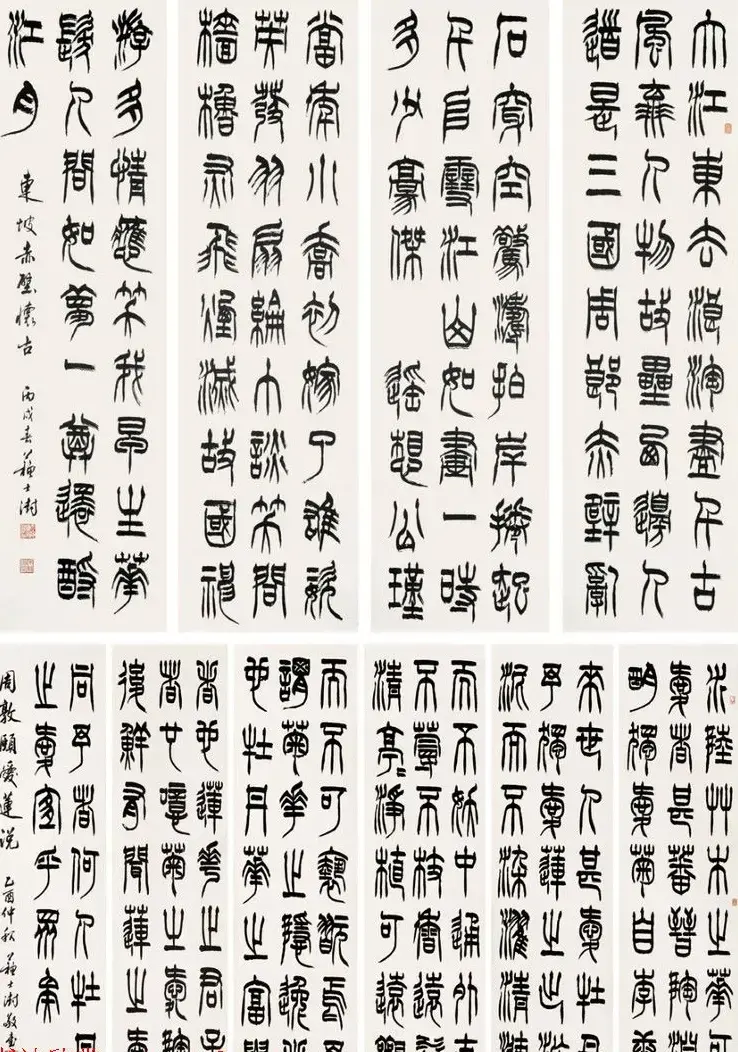 大江東去浪淘盡千古
風流人物故壘西邊人
道是三國周郎赤壁亂
石穿空驚濤拍岸捲起
千堆雪江山如畫一時
多少豪傑 遙想公瑾
當年小喬初嫁了雄姿
英發羽扇綸巾談笑間
檣櫓灰飛煙滅故國神
游多情應笑我早生華
髮人間如夢一尊還酹
江月
東坡赤壁懷古 丙戌春 蘇士澍
水陸艸木之華可
愛者甚蕃晉陶淵
明獨愛菊自李唐
來世人甚愛牡丹
予獨愛蓮之出淤
泥而不染濯清漣
而不妖中通外直
不蔓不枝香遠益
清亭〻淨植可遠觀
而不可褻玩焉予
謂菊華之隱逸者
也牡丹華之富貴
者也蓮花之君子
者也噫菊之愛陶
後鮮有聞蓮之愛
同予者何人牡丹
之愛宜乎眾矣
周敦頤愛蓮說 乙酉仲秋 蘇士澍敬書